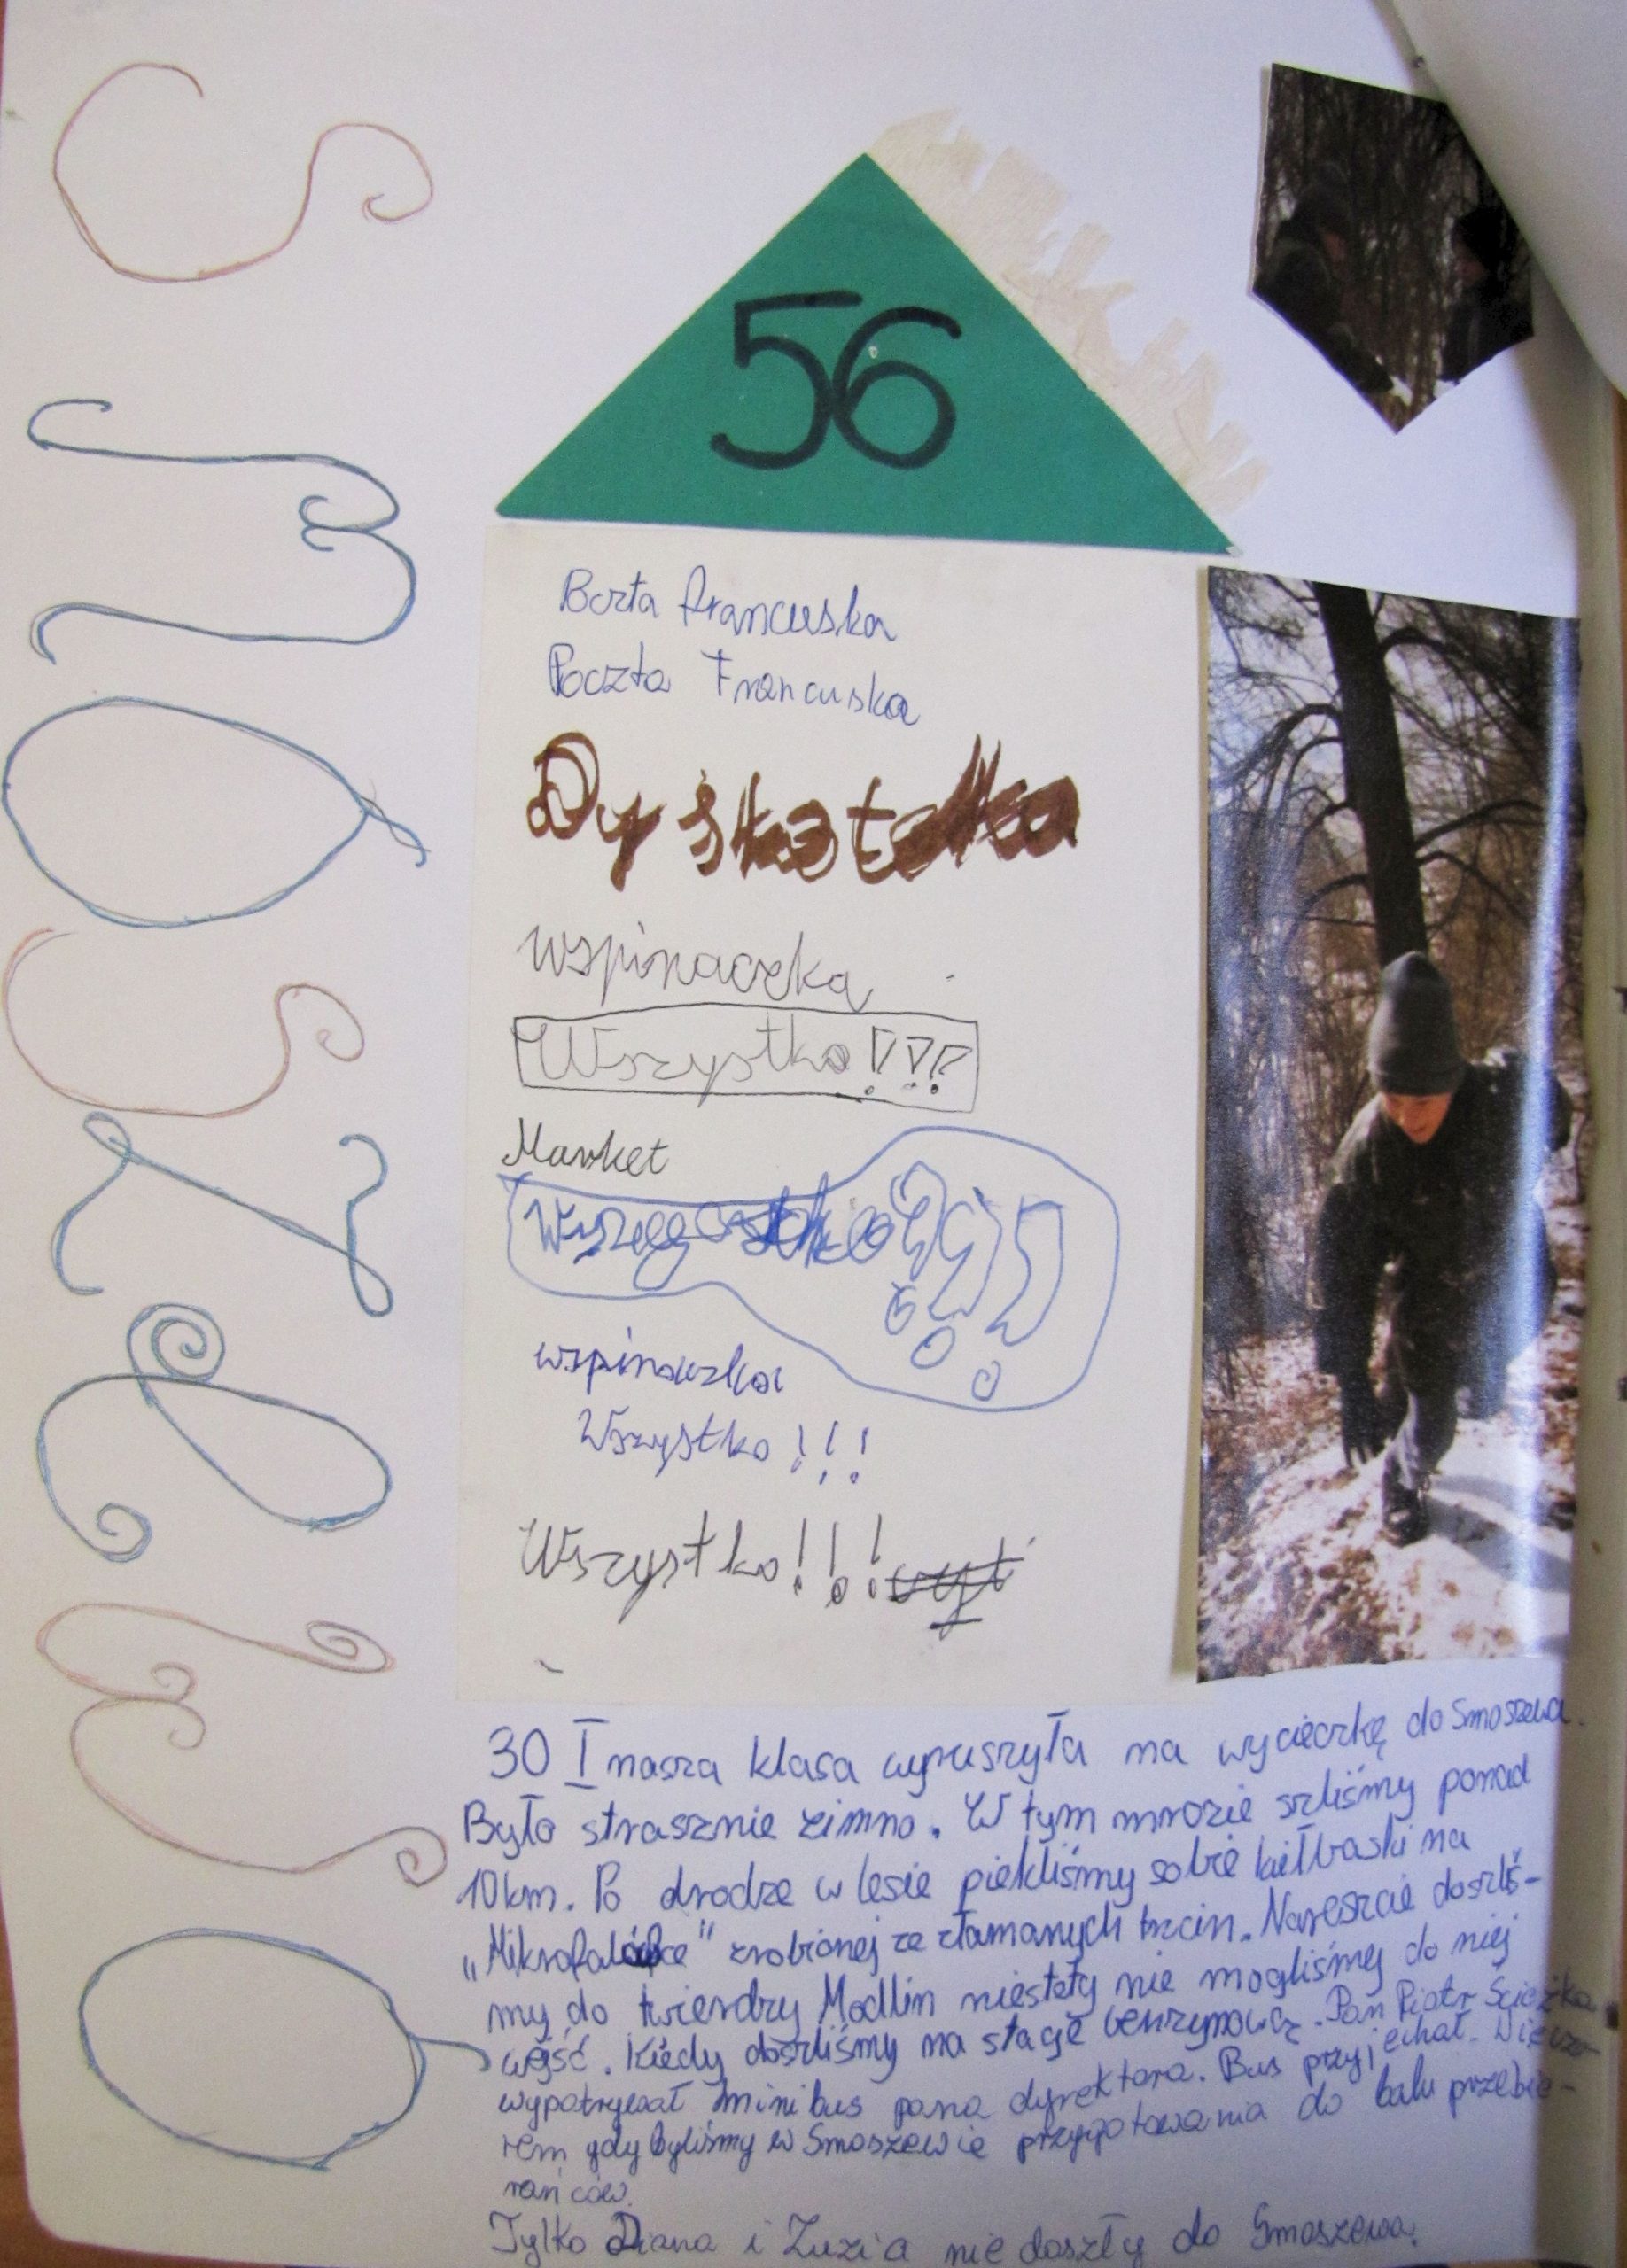 SMOSZEWO
56
Borta francuska
Poczta Francuska
wspinaczka
Wszystko!!!
Market
wspinaczka
Wszystko!!!
Wszystko!!!
30 I nasza klasa wyruszyła na wycieczkę do Smoszewa.
Było strasznie zimno. W tym mrozie szliśmy ponad
10km. Po drodze w lesie piekliśmy sobie kiełbaski na
„Mikrofalówce" zrobionej ze złamanych trzcin. Nareszcie doszliś-
my do twierdzy Modlin niestety nie mogliśmy do niej
wejść. Kiedy doszliśmy na stację benzynową. Pan Piotr Ścieżka
wypatrywał minibus pana dyrektora. Bus przyjechał. Wieczo-
rem gdy byliśmy w Smoszewie przygotowania do balu przebie-
rańców.
Tylko Diana i Zuzia nie doszły do Smoszewa.